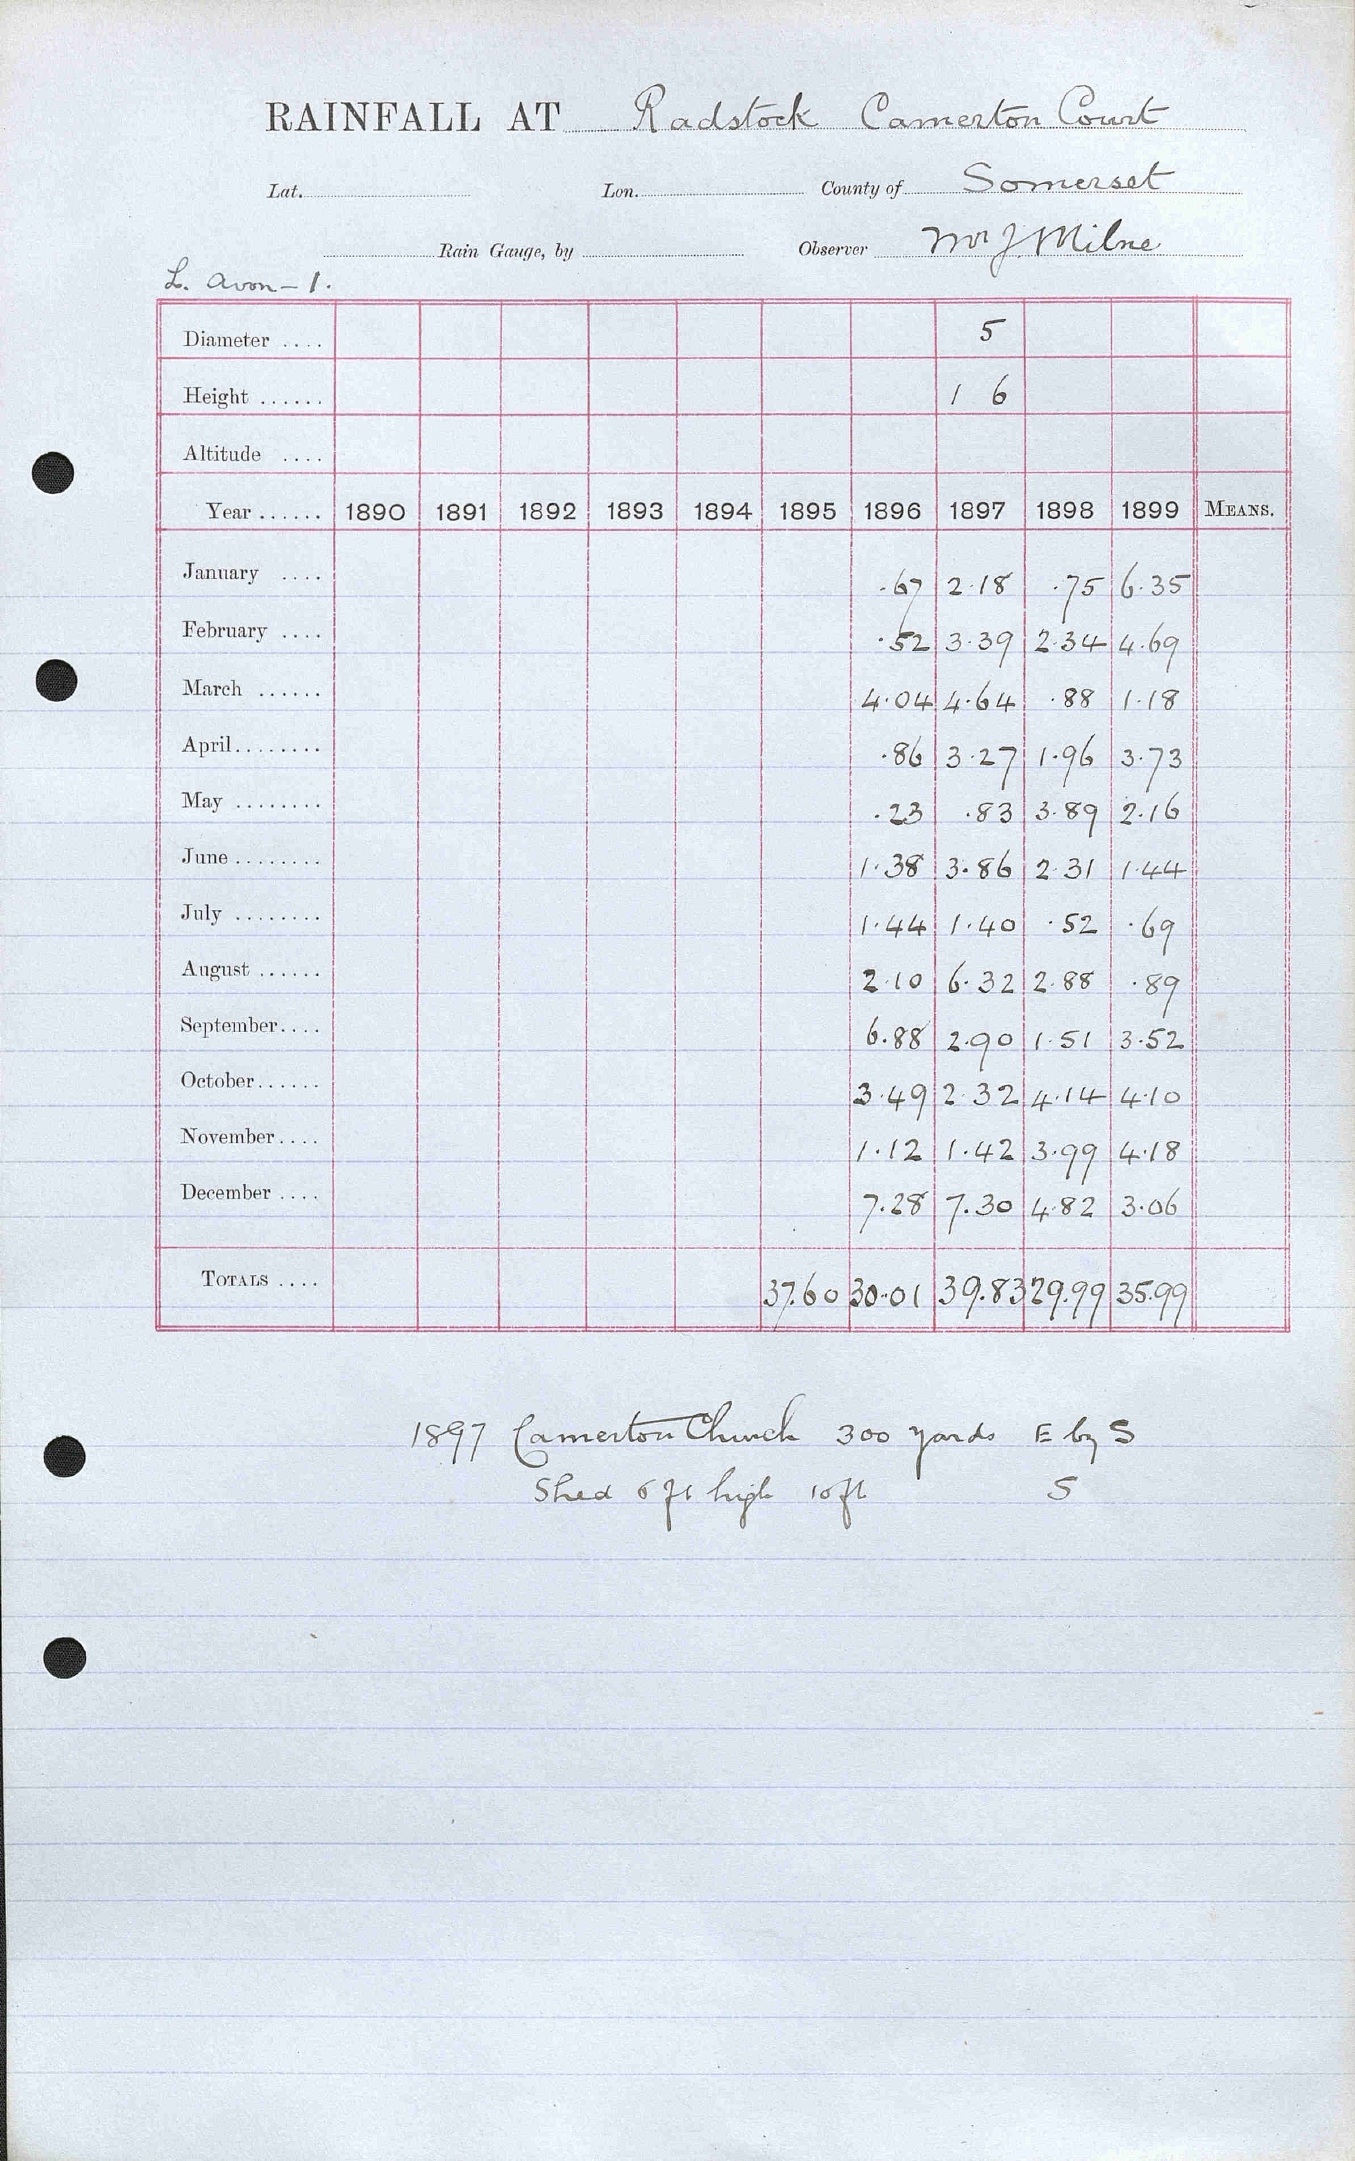 RAINFALL AT Radstock Camerton Court
Lat. Lon. County of Somerset
Rain Gauge, by Observer Mr J Milne
L. Avon - 1.
Diameter .... 5
Height ...... 1 6
Altitude ....
Year ...... 1890 1891 1892 1893 1894 1895 1896 1897 1898 1899 MEANS.
January .... .67 2.18 .75 6.35
February .... .52 3.39 2.34 4.69
March ...... 4.04 4.64 .88 1.18
April........ .86 3.27 1.96 3.73
May ........ .23 .83 3.89 2.16
June ........ 1.38 3.86 2.31 1.44
July ........ 1.44 1.40 .52 .69
August ...... 2.10 6.32 2.88 .89
September.... 6.88 2.90 1.51 3.52
October...... 3.49 2.32 4.14 4.10
November.... 1.12 1.42 3.99 4.18
December .... 7.28 7.30 4.82 3.06
TOTALS .... 37.60 30.01 39.83 29.99 35.99
1897 Camerton Church 300 yards E by S
Shed 6 ft high 10 ft S